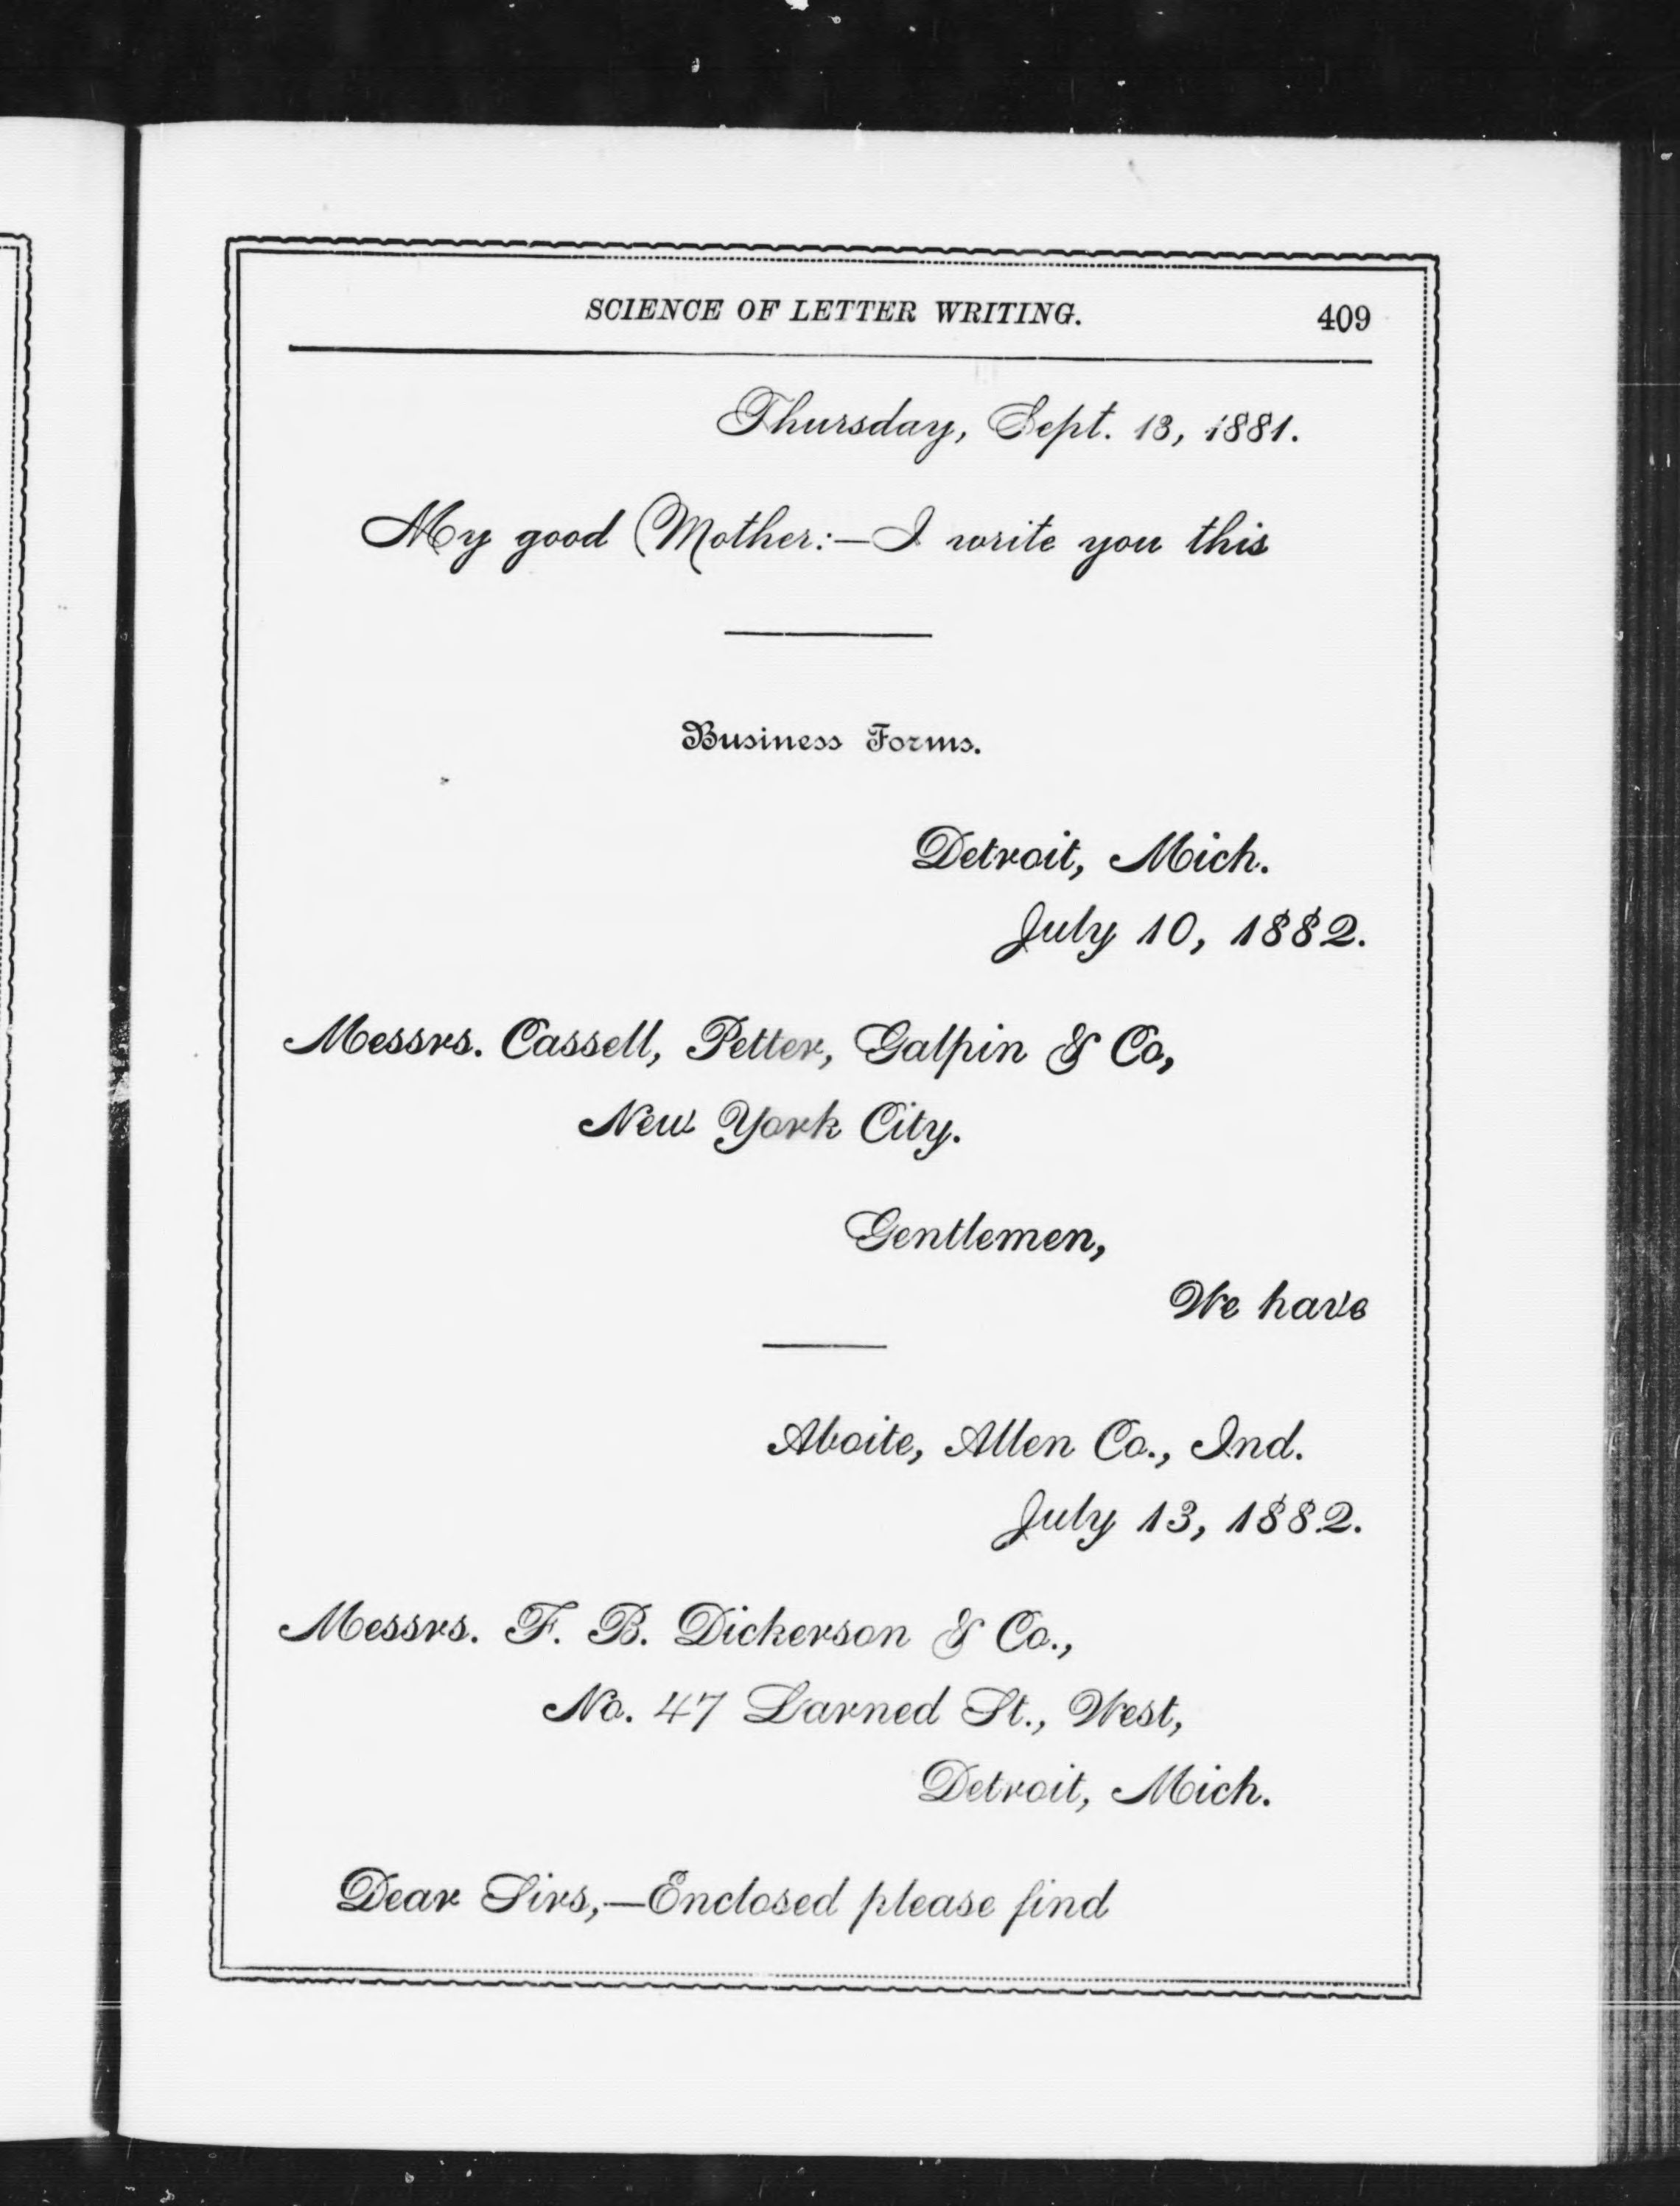 SCIENCE OF LETTER WRITING. 409
Thursday, Sept. 13, 1881.
My good Mother:—I write you this
Business Forms.
Detroit, Mich.
July 10, 1882.
Messrs. Cassell, Petter, Galpin & Co,
New York City.
Gentlemen,
We have
Aboite, Allen Co., Ind.
July 13, 1882.
Messrs. F. B. Dickerson & Co.,
No. 47 Larned St., West,
Detroit, Mich.
Dear Sirs,—Enclosed please find